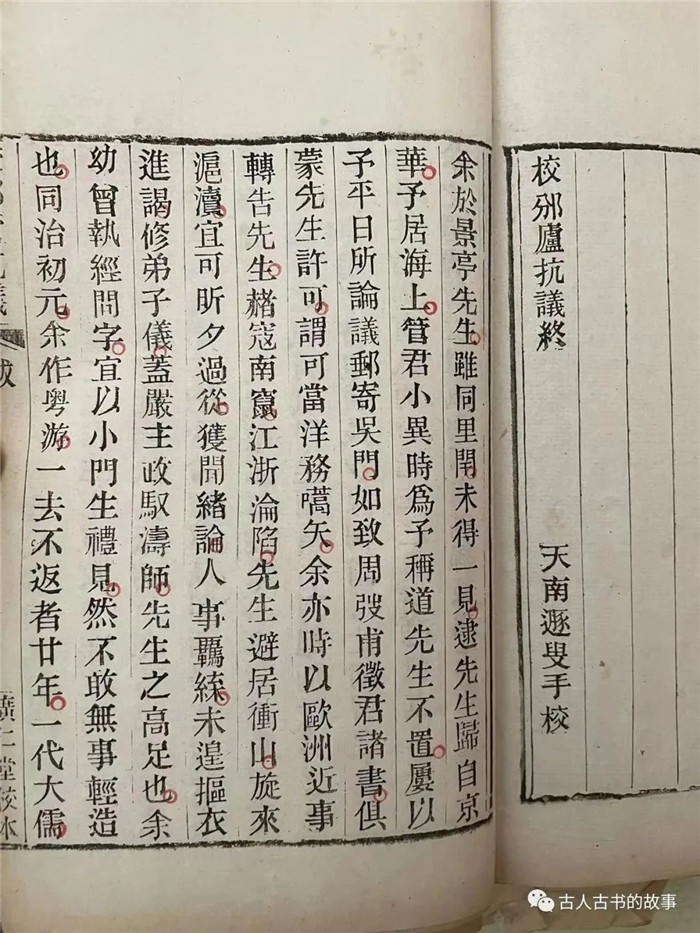 校邠廬抗議終
天南遯叟手校
余於景亭先生雖同里閈未得一見逮先生歸自京
華予居海上管君小異時爲予稱道先生不置屢以
予平日所論議郵寄吳門如致周弢甫徵君諸書俱
蒙先生許可謂可當洋務嚆矢余亦時以歐洲近事
轉告先生赭寇南竄江浙淪陷先生避居衝山旋來
滬瀆宜可昕夕過從獲聞緒論人事羈絏未遑摳衣
進謁修弟子儀蓋嚴主政馭濤師先生之高足也余
幼曾執經問字宜以小門生禮見然不敢無事輕造
也同治初元余作粵游一去不返者廿年一代大儒
跋
廣仁堂校本
古人古书的故事